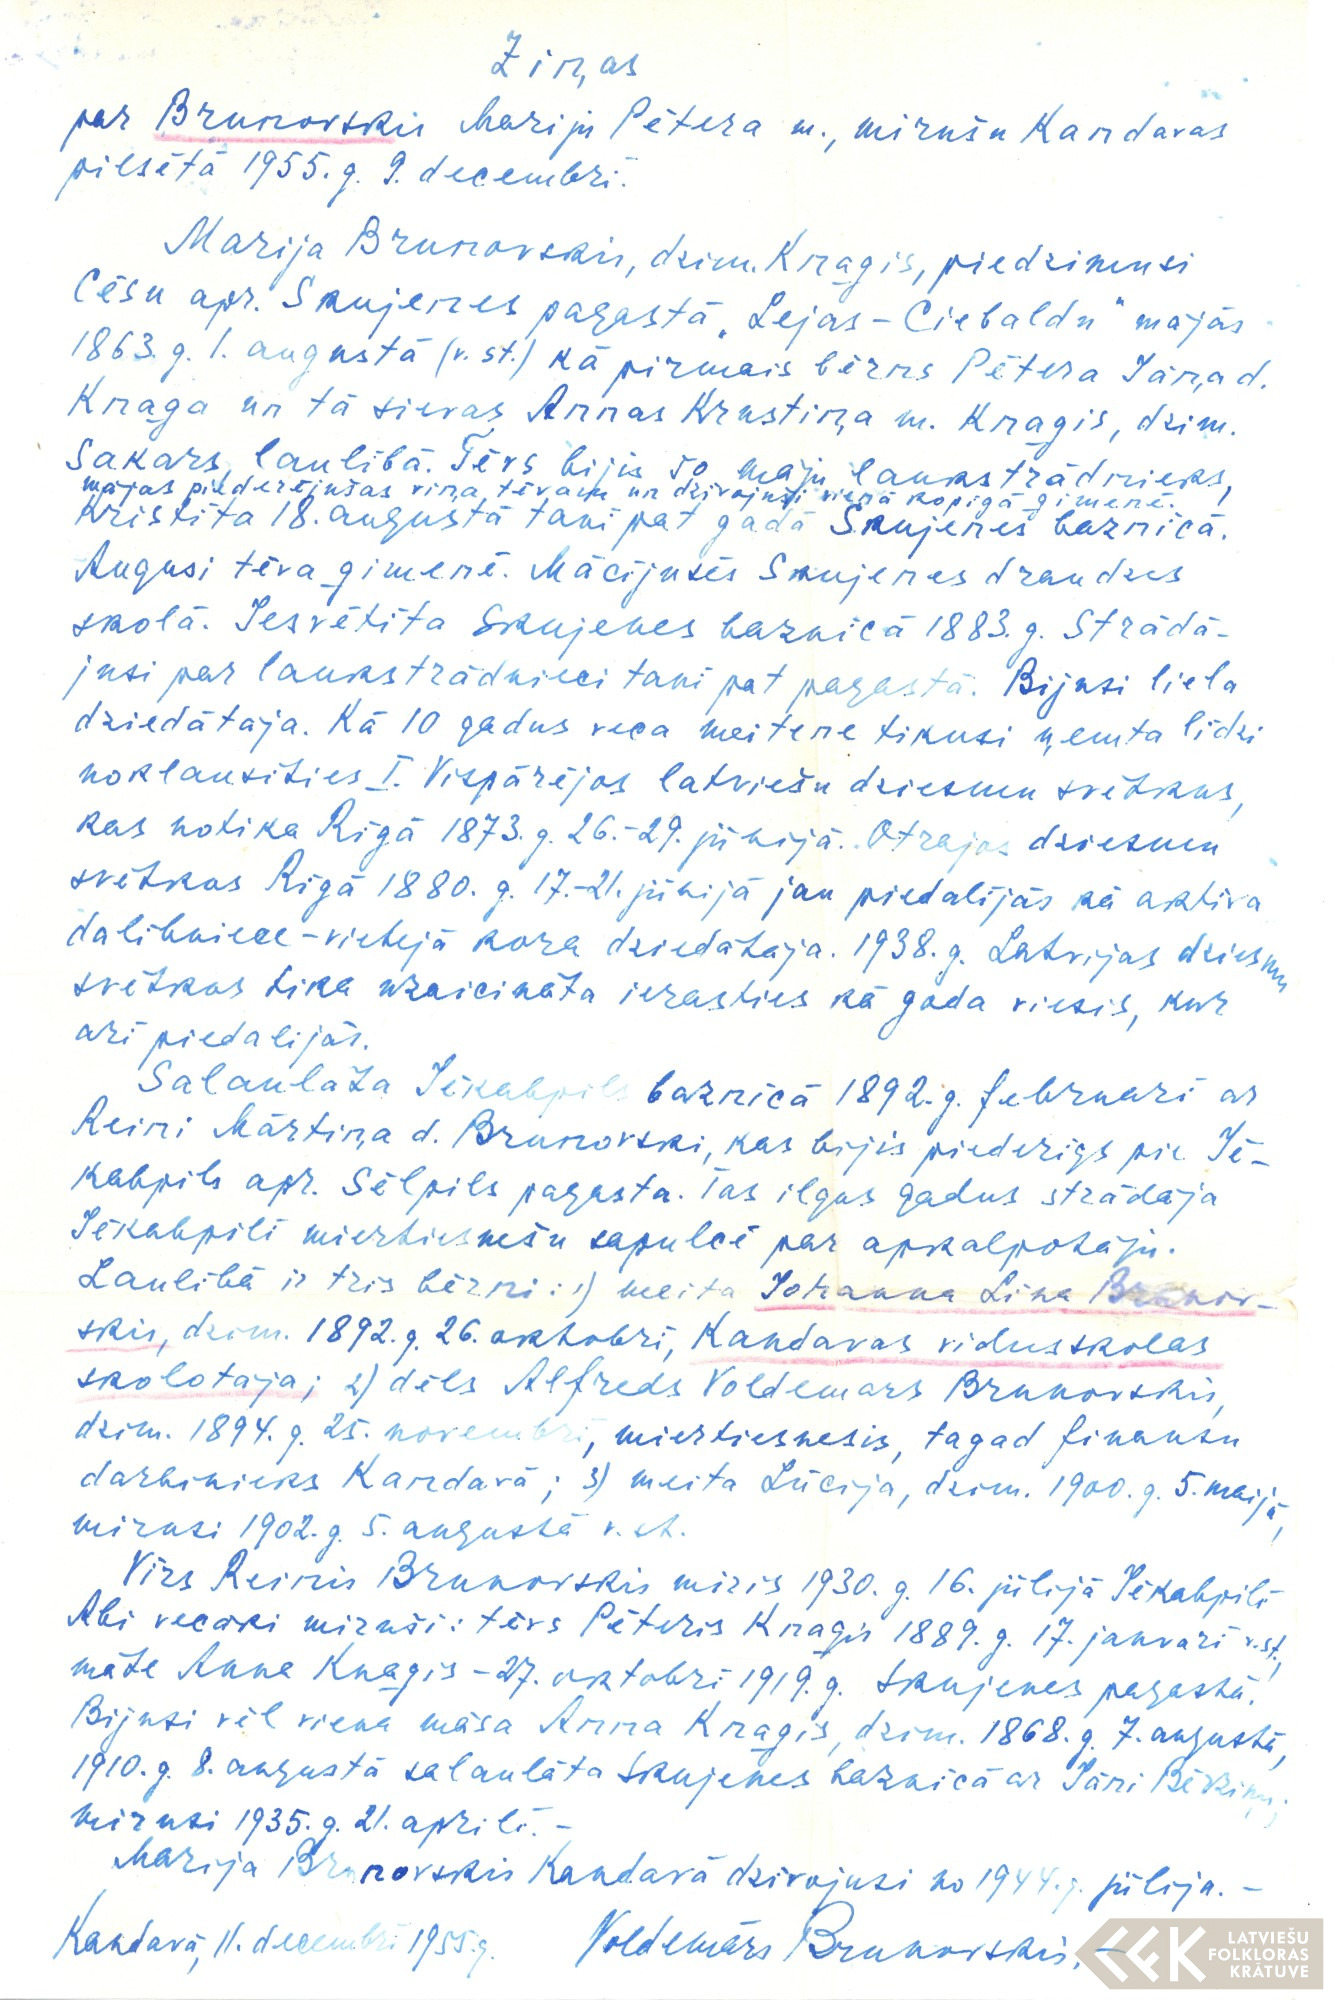 Ziņas
par Brunovskis Mariju Pētera m., mirušu Kandavas
pilsētā 1955. g. 9. decembrī.
Marija Brunovskis, dzim. Knaģis, piedzimusi
Cēsu apr. Skujenes pagastā „Lejas-Ciebaldu" mājās
1863. g. 1. augustā (v. st.) kā pirmais bērns Pētera Jāņa d.
Knaģa un tā sievas Annas Krustiņa m. Knaģis, dzim.
Sakars, laulībā. Tēvs bijis šo māju laukstrādnieks,
mājas piederējušas viņa tēvam un dzīvojuši vienā kopīgā ģimenē.
Kristīta 18. augustā tanī pat gadā Skujenes baznīcā.
Augusi tēva ģimenē. Mācījusēs Skujenes draudzes
skolā. Iesvētīta Skujenes baznīcā 1883. g. Strādā-
jusi par laukstrādnieci tanī pat pagastā. Bijusi liela
dziedātāja. Kā 10 gadus veca meitene tikusi ņemta līdzi
noklausīties I. Vispārējos latviešu dziesmu svētkus,
kas notika Rīgā 1873. g. 26.-29. jūnijā. Otrajos dziesmu
svētkos Rīgā 1880. g. 17.-21. jūnijā jau piedalījās kā aktīva
dalībniece-vietējā kora dziedātāja. 1938. g. Latvijas dziesmu
svētkos tika uzaicināta ierasties kā goda viesis, kur
arī piedalījās.
Salaulāta Jēkabpils baznīcā 1892. g. februarī ar
Reini Mārtiņa d. Brunovski, kas bijis piederīgs pie Jē-
kabpils apr. Sēlpils pagasta. Tas ilgus gadus strādāja
Jēkabpilī miertiesnešu sapulcē par apkalpotāju.
Laulībā ir trīs bērni: 1) meita Johanna Līna Brunov-
skis, dzim. 1892. g. 26. oktobrī, Kandavas vidusskolas
skolotāja; 2) dēls Alfreds Voldemars Brunovskis,
dzim. 1894. g. 25. novembrī, miertiesnesis, tagad finansu
darbinieks Kandavā; 3) meita Lūcija, dzim. 1900. g. 5. maijā,
mirusi 1902. g. 5. augustā v. st.
Vīrs Reinis Brunovskis miris 1930. g. 16. jūlijā Jēkabpilī
Abi vecāki miruši: tēvs Pēteris Knaģis 1889. g. 17. janvarī v. st.,
māte Anna Knaģis - 27. oktobrī 1919. g. Skujenes pagastā.
Bijusi vēl viena māsa Anna Knaģis, dzim. 1868. g. 7. augustā,
1910. g. 8. augustā salaulāta Skujenes baznīcā ar Jāni Bērziņu;
mirusi 1935. g. 21. aprīlī. -
Marija Brunovskis Kandavā dzīvojusi no 1944. g. jūlija. -
Kandavā, 11. decembrī 1955. g. Voldemārs Brunovskis. -
LATVIEŠU
FOLKLORAS
KRĀTUVE